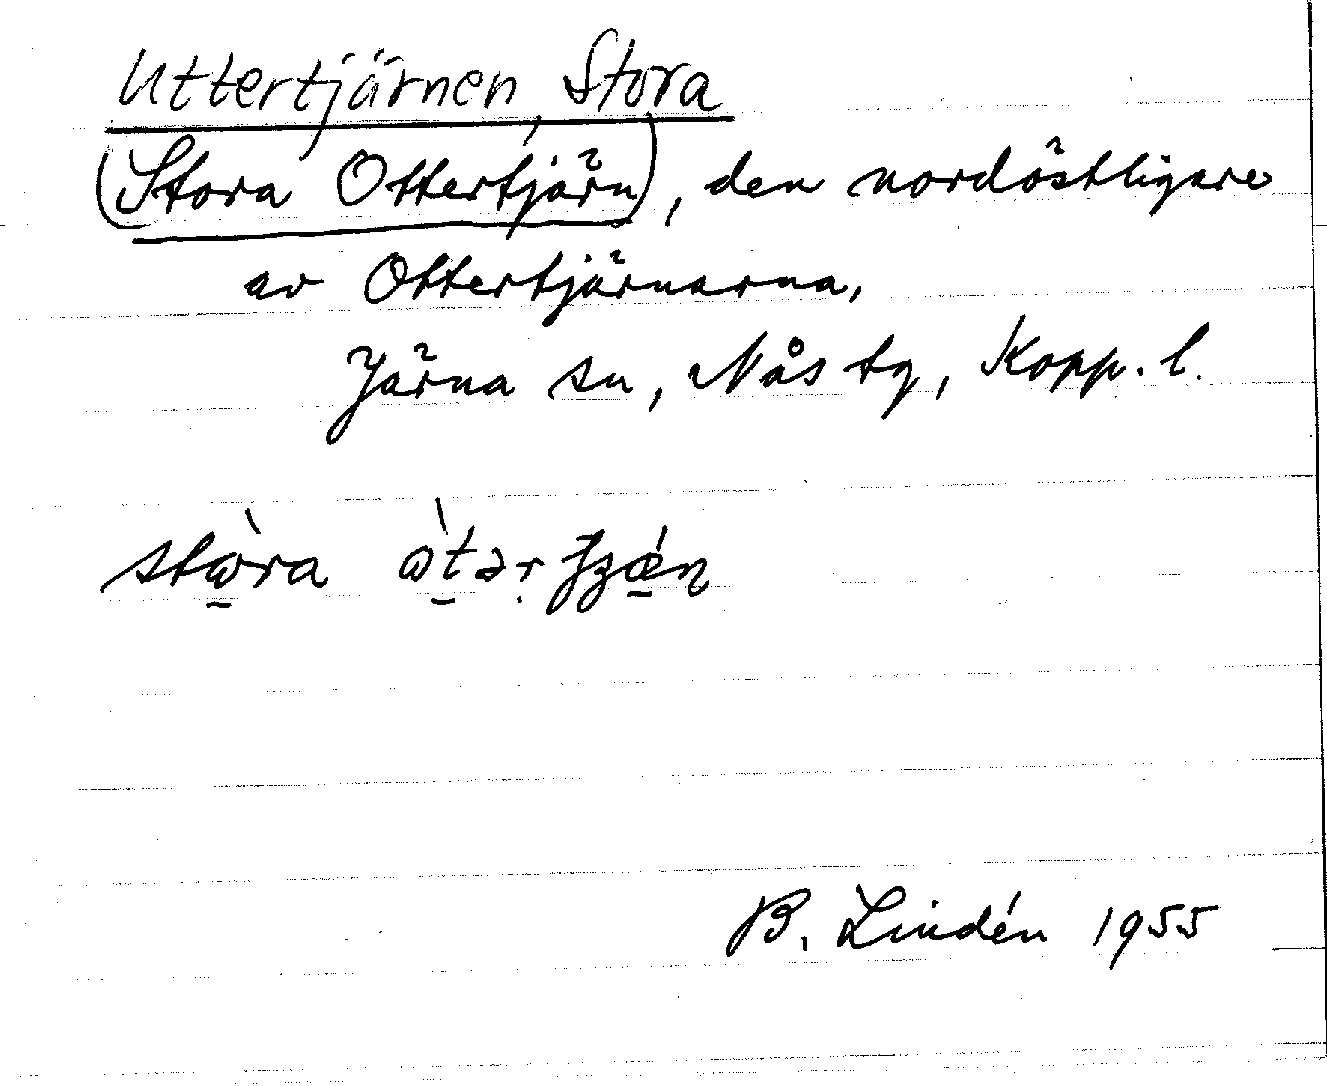 Uttertjärnen, Stora
(Stora Ottertjärn), den nordöstligare
av Ottertjärnarna,
Järna sn, Nås tg, Kopp. l.
B. Lindén 1955